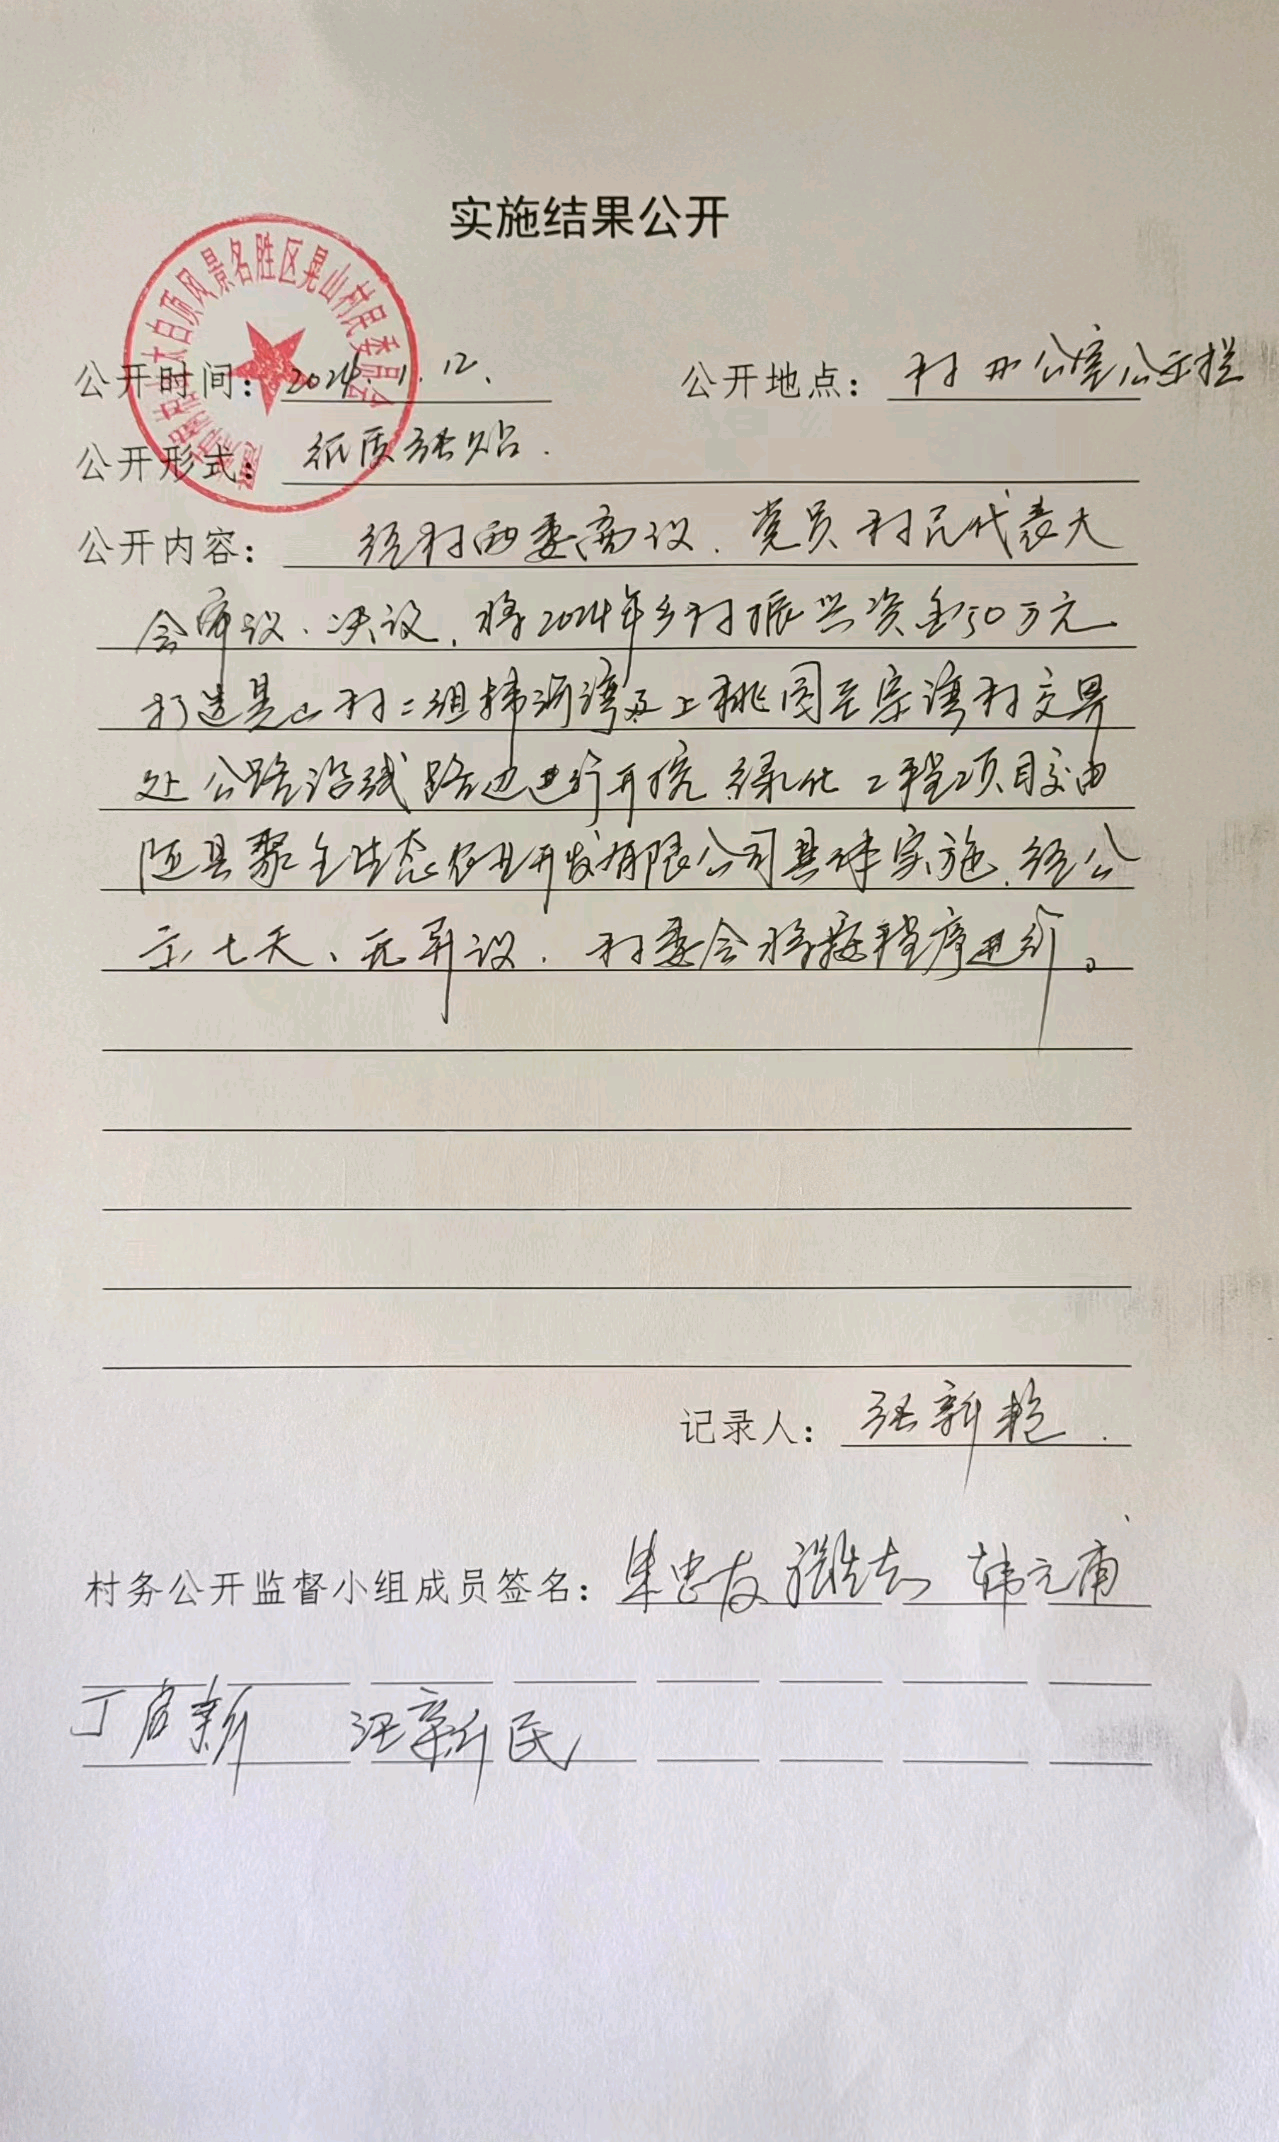 实施结果公开
太白顶风景名胜区晃山村民委员会
公开时间：2024.1.12. 公开地点：村办公室公示栏
公开形式：纸质张贴.
公开内容：经村两委商议、党员村民代表大
会审议、决议，将2024年乡村振兴资金50万元
打造晃山村二组 河湾及上桃园至 湾村交界
处公路沿线路边进行开挖绿化工程项目交由
随县聚全生态农业开发有限公司具体实施，经公
示七天、无异议，村委会将按程序进行。
记录人：张新
村务公开监督小组成员签名：朱忠友 韩元甫
丁启新 汪新民